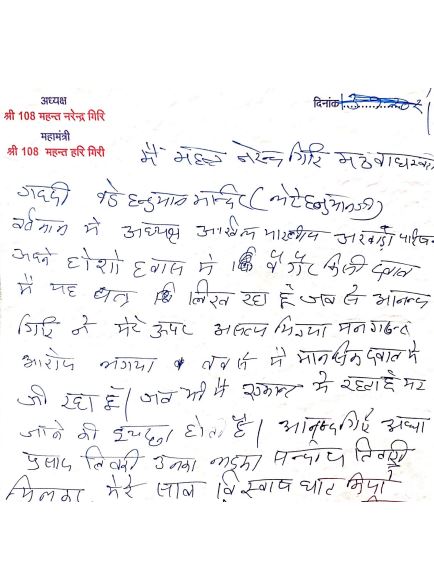 अध्यक्ष
श्री 108 महन्त नरेन्द्र गिरि
महामंत्री
श्री 108 महन्त हरि गिरी
दिनांक
मैं महन्त नरेन्द्र गिरि मठ बाघम्बरी
गद्दी बडे हनुमान मन्दिर (लेटे हनुमानजी)
वर्तमान में अध्यक्ष अखिल भारतीय अखाड़ा परिषद
अपने होशो हवास में बगैर किसी दबाव
में यह पत्र लिख रहा हूँ जब से आनन्द
गिरि ने मेरे ऊपर असत्य मिथ्या मनगढन्त
आरोप लगाया तब से मैं मानसिक दबाव में
जी रहा हूँ। जब भी मैं एकान्त में रहता हूँ मर
जाने की इच्छा होती है। आनन्द गिरि अध्या
प्रसाद तिवारी उनका लड़का सन्दीप तिवारी
मिलकर मेरे साथ विश्वासघात किया